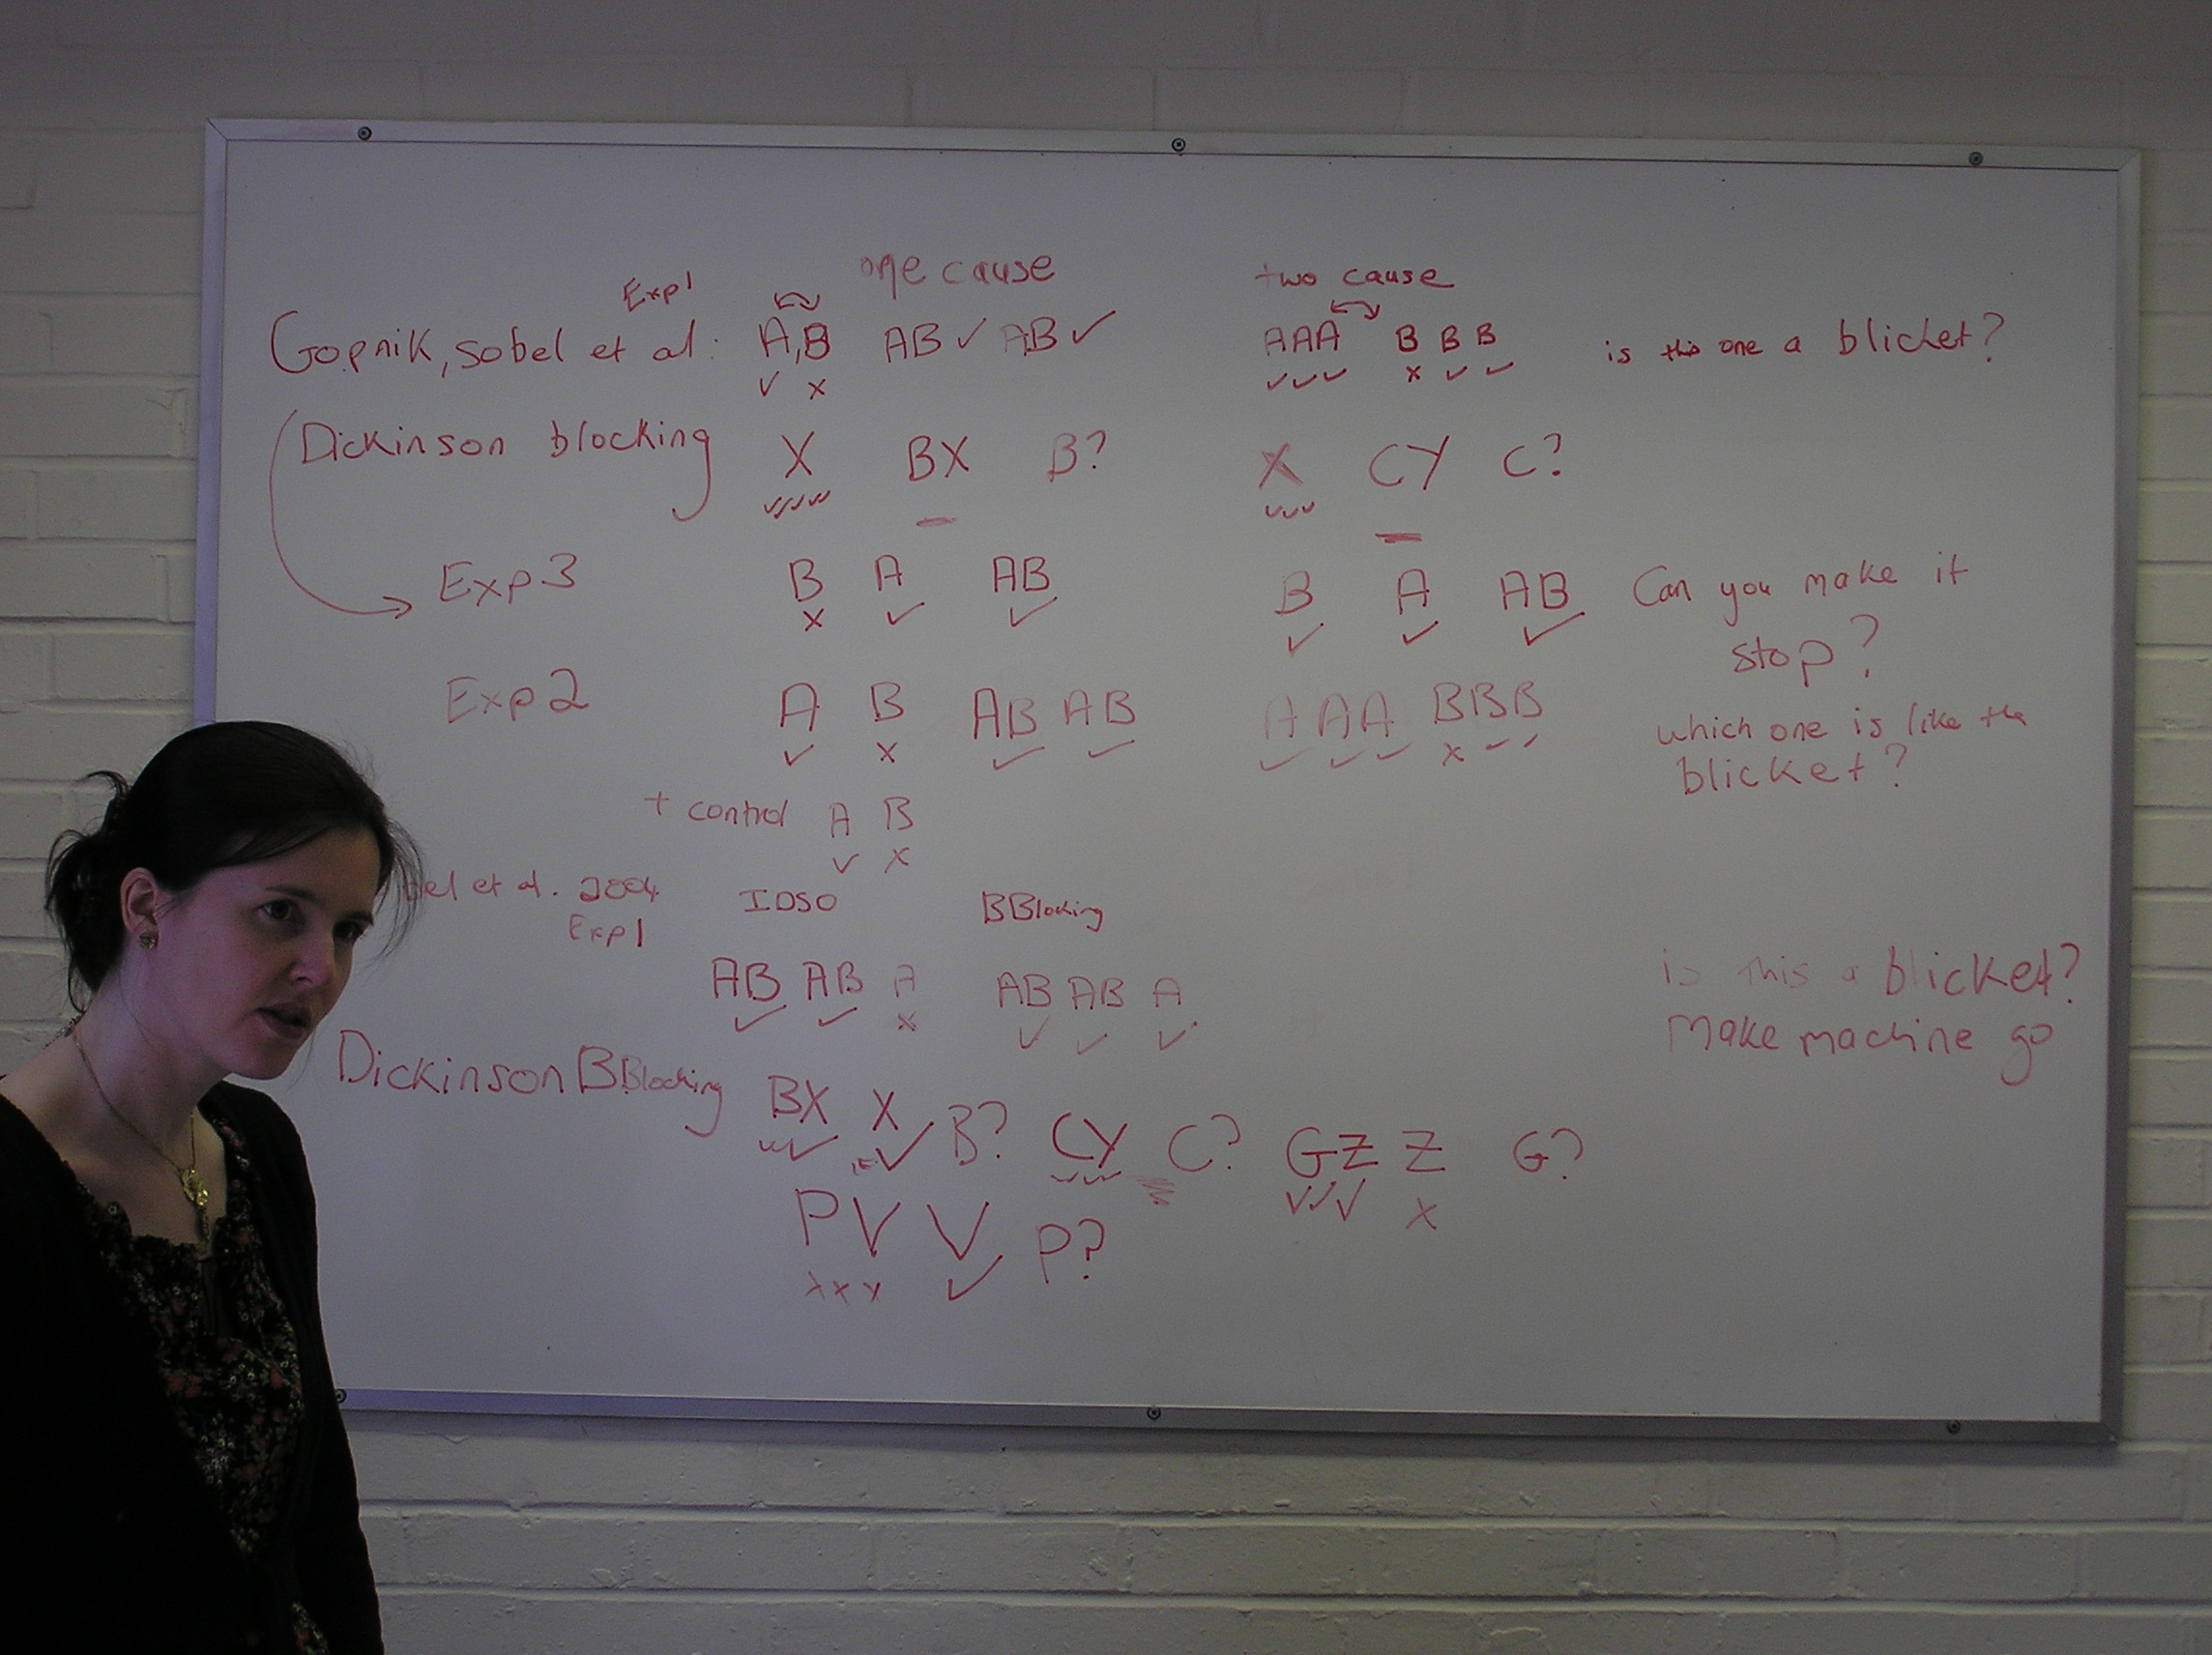 one cause two cause
Exp1
Gopnik, sobel et al: A,B AB ✓ AB ✓ AAA B B B is this one a blicket?
✓ x ✓✓✓ x ✓ ✓
Dickinson blocking X BX B? X CY C?
✓✓✓✓ — ✓✓✓ —
Exp3 B A AB B A AB Can you make it
x ✓ ✓ ✓ ✓ ✓ stop?
Exp2 A B AB AB A A A BBB which one is like the
✓ x ✓ ✓ ✓ ✓ ✓ x ✓ ✓ blicket?
+ control A B
✓ x
bel et al. 2004 IOSO BBlocking
Exp1
AB AB A AB AB A is this a blicket?
✓ ✓ x ✓ ✓ ✓ Make machine go
Dickinson BBlocking BX X B? CY C? GZ Z G?
✓✓✓ ✓ ✓✓✓ ✓✓✓ x
PV V P?
xxx ✓